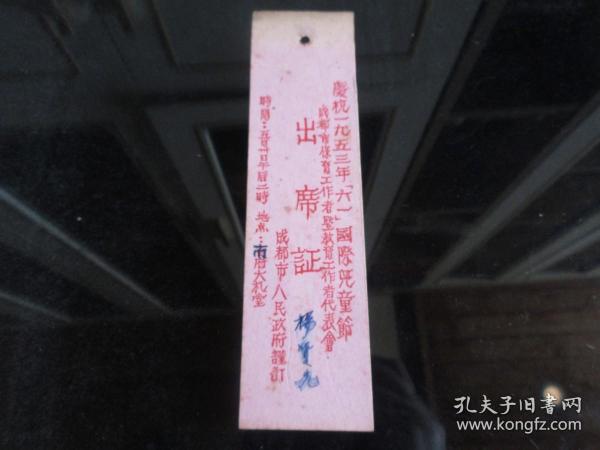 慶祝一九五三年「六一」國際兒童節
成都市保育工作者暨教育工作者代表會
出席証
成都市人民政府謹訂
時間：五月卅日午后二時 地点：市府大礼堂
孔夫子旧书网
www.kongfz.com